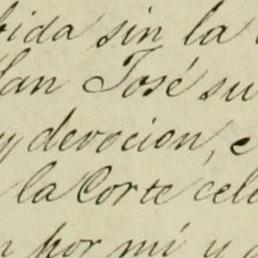 bida sin la
San José su
y devocion, e
la Corte cele
n por mí y a